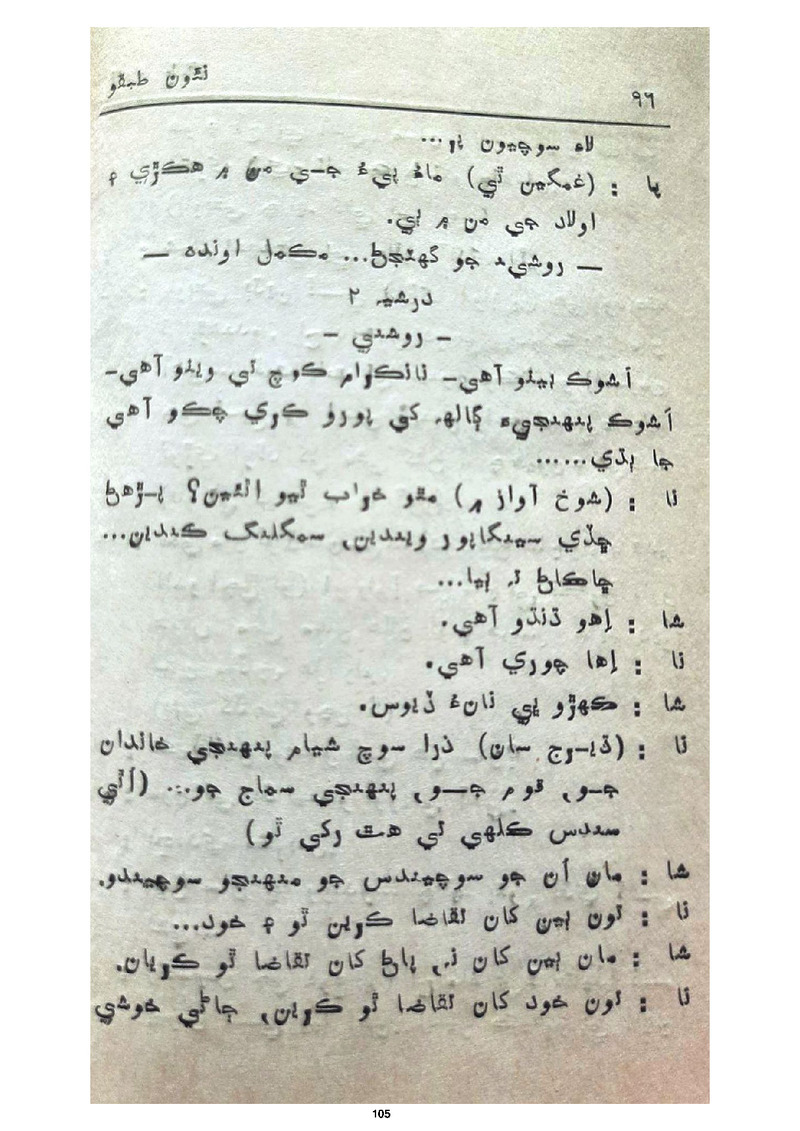 نئون طبقو
٩٦
لاءِ سوچيون پر...
پا : (غمگين ٿي) ماءُ پيءُ جي من ۾ هڪڙي ۽
اولاد جي من ۾ ٻي.
— روشنيءَ جو گهٽجڻ... مڪمل اونده —
درشيہ ٢
- روشني -
اَشوڪ بيٺو آهي- نانڪرام ڪوچ تي ويٺو آهي-
اَشوڪ پنهنجيءَ ڳالھہ کي پورو ڪري چڪو آهي
جا ٻڌي......
نا : (شوخ آواز ۾) مٿو خراب ٿيو اٿئين؟ پڙهڻ
ڇڏي سينگاپور ويندين، سمگلنگ ڪندين...
ڇاڪاڻ تہ ٻيا...
شا : اِهو ڌنڌو آهي.
نا : اِها چوري آهي.
شا : ڪهڙو بي نانءُ ڏيوس.
نا : (ڌيرج سان) ذرا سوچ شيام پنهنجي خاندان
جو، قوم جو، پنهنجي سماج جو... (اُٿي
سندس ڪلهي تي هٿ رکي ٿو)
شا : مان اُن جو سوچيندس جو منهنجو سوچيندو.
نا : تون ٻين کان تقاضا ڪرين ٿو ۽ خود...
شا : مان ٻين کان نہ، پاڻ کان تقاضا ٿو ڪريان.
نا : تون خود کان تقاضا ٿو ڪرين، ڄاڻي خوشي
105